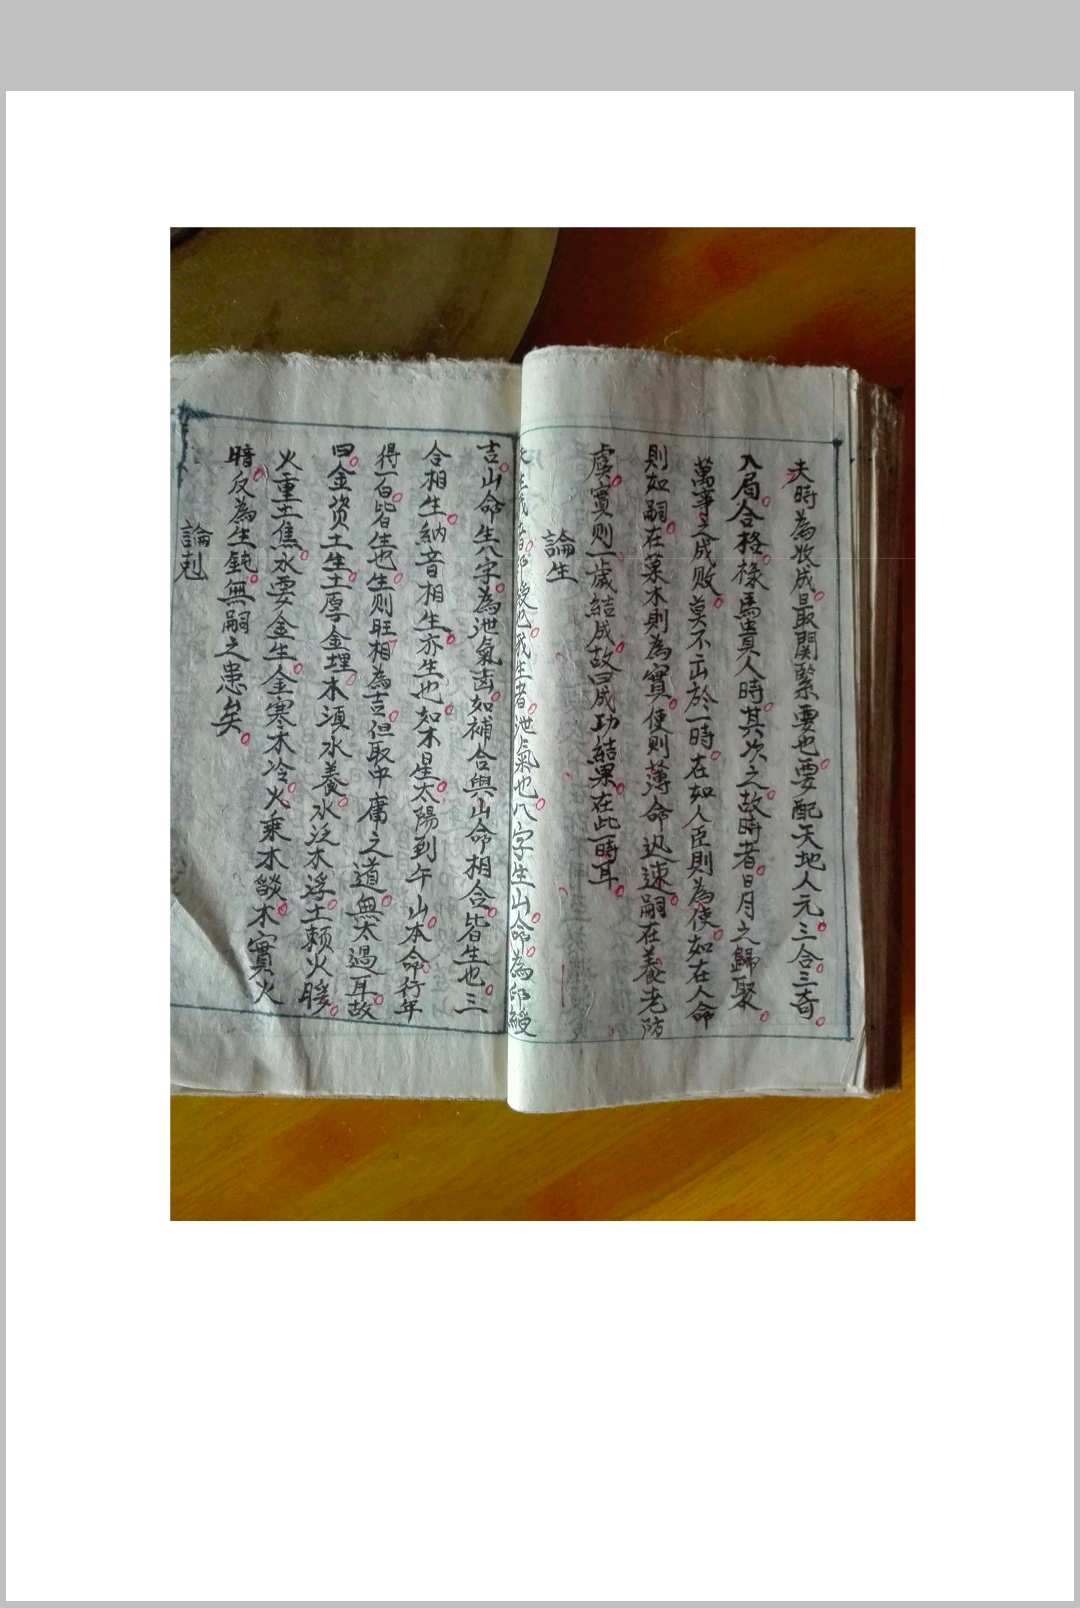 夫時為收成最關緊要也要配天地人元三合三奇
入局合格祿馬貴人時其次之故時者日月之歸聚
萬事之成败莫不出於一時在如人臣則為使如在人命
則如嗣在菓木則為實使則薄命迅速嗣在養老防
虞實則一歲結成故曰成功結果在此一時耳
論生
生我者印綬也我生者泄氣也八字生山命為印綬
吉山命生八字為泄氣凶如補合與山命相合皆生也三
合相生納音相生亦生也如木星太陽到午山本命行年
得一白皆生也生則旺相為吉但取中庸之道無太過耳故
曰金资土生土厚金埋木湏水養水泛木浮土頼火暖
火重土焦水要金生金寒水冷火乗木燄木實火
暗反為生鈍無嗣之患矣
論剋